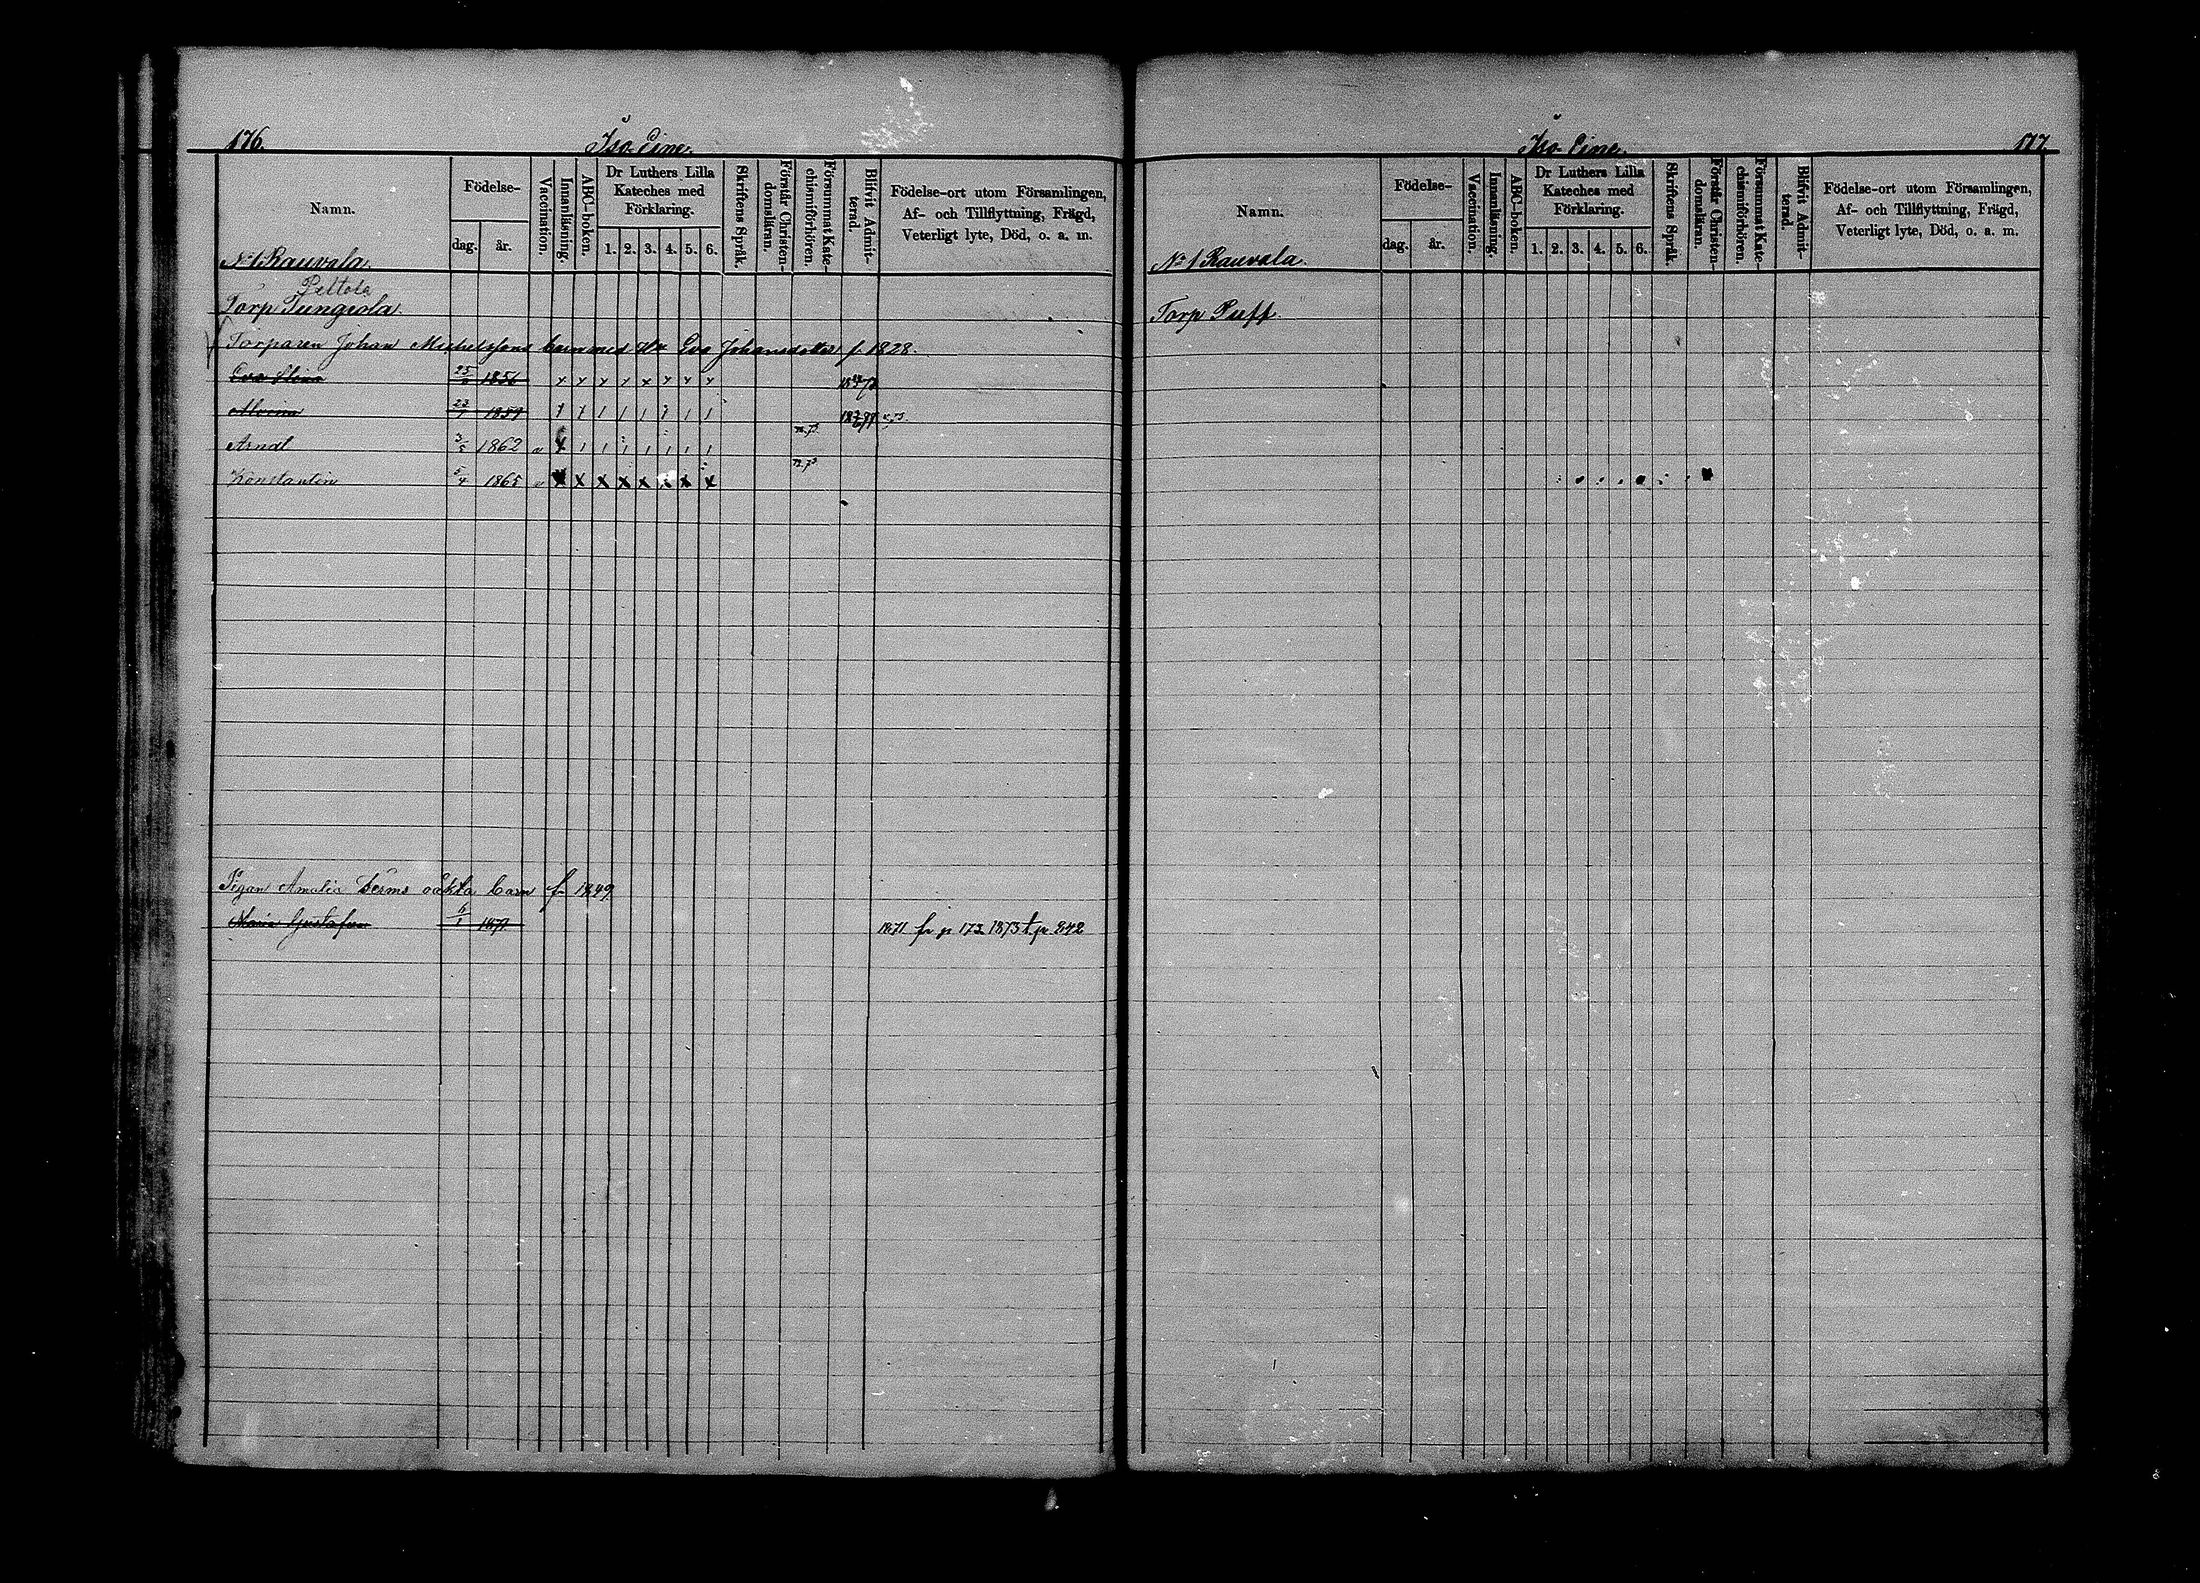 176.
Iso Eine.
Namn.
Födelse-
dag.
år.
Vaccination.
Innanläsning.
ABC-boken.
Dr Luthers Lilla
Kateches med
Förklaring.
1. 2. 3. 4. 5. 6.
Skriftens Språk.
Förstår Christen-
domsläran.
Försummat Kate-
chismiförhören.
Blifvit Admit-
terad.
Födelse-ort utom Församlingen,
Af- och Tillflyttning, Frägd,
Veterligt lyte, Död, o. a. m.
No 1 Rauvala.
Peltola
Torp Tungeola.
Torparen Johan Michelssons barn med Eva Johansdotter f. 1828.
Eva Stina 25 1856 x x x x x x x x
Alvina 23/1 1859 1 1 1 1 1 1 1
72. 73.
Arndt 3/5 1862 v x 1 1 1 1 1 1 1
72. 73
Konstantin 5/4 1865 v x x x x x x x x
Pigan Amalia Derms oäkta barn f. 1849
Maria Gustafva 6/1 1871 1871 fr p 173 1873 t. p. 842
177.
Iso Eine.
Namn.
Födelse-
dag.
år.
Vaccination.
Innanläsning.
ABC-boken.
Dr Luthers Lilla
Kateches med
Förklaring.
1. 2. 3. 4. 5. 6.
Skriftens Språk.
Förstår Christen-
domsläran.
Försummat Kate-
chismiförhören.
Blifvit Admit-
terad.
Födelse-ort utom Församlingen,
Af- och Tillflyttning, Frägd,
Veterligt lyte, Död, o. a. m.
No 1 Rauvala.
Torp Puff.